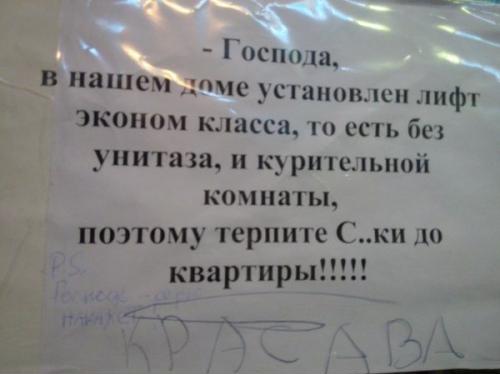 - Господа,
в нашем доме установлен лифт
эконом класса, то есть без
унитаза, и курительной
комнаты,
поэтому терпите С..ки до
квартиры!!!!!
P.S.
КРАСАВА